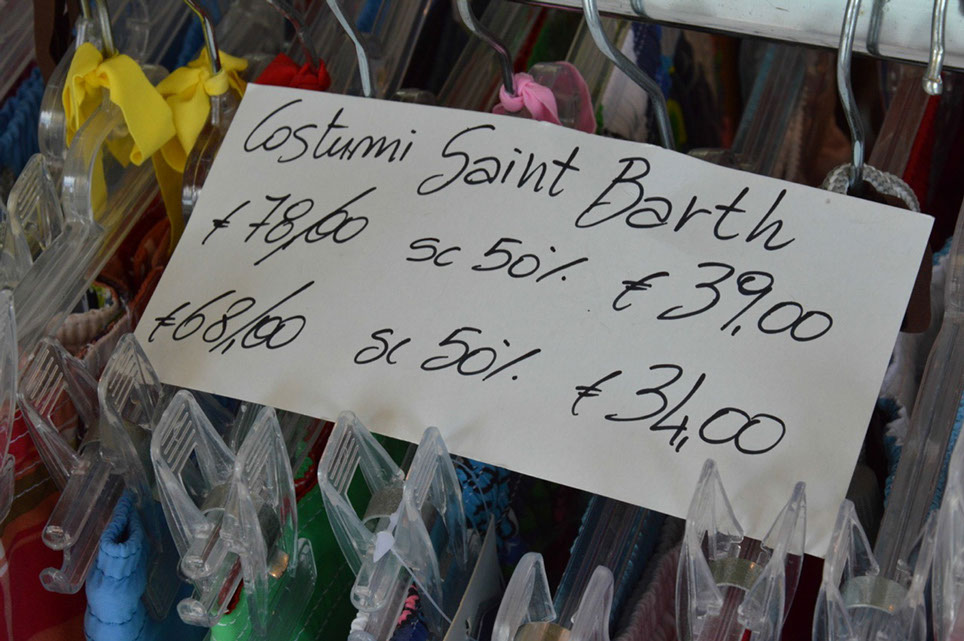 Costumi Saint Barth
€78,00 sc 50% € 39,00
€68,00 sc 50% € 34,00